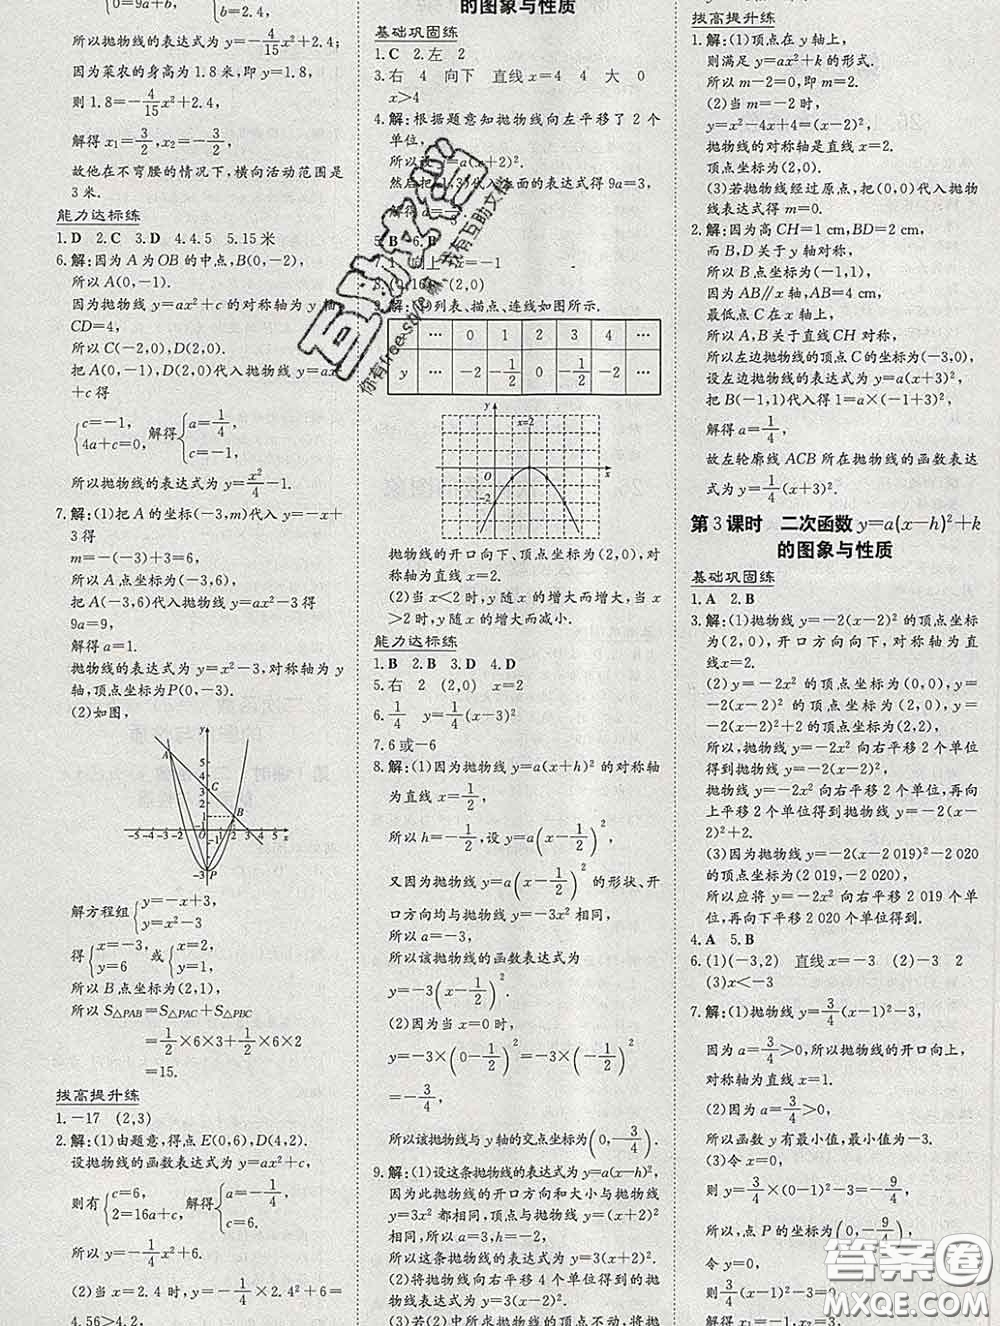 所以抛物线的表达式为y=-4/15x²+2.4,
因为菜农的身高为1.8米,即y=1.8,
则1.8=-4/15x²+2.4,
解得x₁=3/2,x₂=-3/2.
故他在不弯腰的情况下,横向活动范围是
3米.
能力达标练
1.D 2.C 3.D 4.4.5 5.15米
6.解:因为A为OB的中点,B(0,-2),
所以A(0,-1).
因为抛物线y=ax²+c的对称轴为y轴,
CD=4,
所以C(-2,0),D(2,0).
把A(0,-1),D(2,0)代入抛物线y=ax²
+c得
{c=-1, 4a+c=0, 解得{a=1/4, c=-1.
所以抛物线的表达式为y=x²/4-1.
7.解:(1)把A的坐标(-3,m)代入y=-x+
3得
m=-(-3)+3=6,
所以A点坐标为(-3,6),
把A(-3,6)代入抛物线y=ax²-3得
9a=9,
解得a=1.
抛物线的表达式为y=x²-3,对称轴为y
轴,顶点坐标为P(0,-3).
(2)如图,
解方程组{y=-x+3, y=x²-3
得{x=-3, y=6 或{x=2, y=1,
所以B点坐标为(2,1),
所以S△PAB=S△PAC+S△PBC
=1/2×6×3+1/2×6×2
=15.
拔高提升练
1.-17 (2,3)
2.解:(1)由题意,得点E(0,6),D(4,2).
设抛物线的函数表达式为y=ax²+c,
则有{c=6, 2=16a+c, 解得{a=-1/4, c=6.
所以y=-1/4x²+6.
(2)当x=2.4时,y=-1/4×2.4²+6=
4.56>4.2,
的图象与性质
基础巩固练
1.C 2.左 2
3.右 4 向下 直线x=4 4 大 0
x>4
4.解:根据题意知抛物线向左平移了2个
单位,
(1)列表、描点、连线如图所示.
x … 0 1 2 3 4 …
y … -2 -1/2 0 -1/2 -2 …
x=2
抛物线的开口向下、顶点坐标为(2,0),对
称轴为直线x=2.
(2)当x<2时,y随x的增大而增大,当x
>2时,y随x的增大而减小.
能力达标练
1.B 2.B 3.D 4.D
5.右 2 (2,0) x=2
6.1/4 y=1/4(x-3)²
7.6或-6
8.解:(1)因为抛物线y=a(x+h)²的对称轴
为直线x=1/2,
所以h=-1/2,设y=a(x-1/2)²,
又因为抛物线y=a(x-1/2)²的形状、开
口方向均与抛物线y=-3x²相同,
所以a=-3,
所以该抛物线的函数表达式为
y=-3(x-1/2)².
(2)因为当x=0时,
y=-3×(0-1/2)²
=-3/4,
所以该抛物线与y轴的交点坐标为(0,-3/4).
9.解:(1)设这条抛物线的表达式为y=a(x-h)²,
因为此抛物线的开口方向和大小与抛物线
y=3x²都相同,顶点与抛物线y=(x+2)²
相同,所以a=3,h=-2,
所以这条抛物线的表达式为y=3(x+2)².
(2)将抛物线向右平移4个单位得到的抛物
线的表达式为y=3(x-2)².
(3)若(2)中所求抛物线的顶点不动,将抛
拔高提升练
1.解:(1)顶点在y轴上,
则满足y=ax²+k的形式.
所以m-2=0,即m=2.
(2)当m=-2时,
y=x²-4x+4=(x-2)².
抛物线的对称轴是直线x=2.
顶点坐标为(2,0).
(3)若抛物线经过原点,把(0,0)代入抛物
线表达式得m=0.
2.解:因为高CH=1cm,BD=2cm,
而B,D关于y轴对称,
所以D(1,1).
因为AB∥x轴,AB=4cm,
最低点C在x轴上,
所以A,B关于直线CH对称.
所以左边抛物线的顶点C的坐标为(-3,0).
设左边抛物线的表达式为y=a(x+3)².
把B(-1,1)代入,得1=a×(-1+3)²
解得a=1/4,
故左轮廓线ACB所在抛物线的函数表达
式为y=1/4(x+3)².
第3课时 二次函数y=a(x-h)²+k
的图象与性质
基础巩固练
1.A 2.B
3.解:(1)抛物线y=-2(x-2)²的顶点坐标
为(2,0),开口方向向下,对称轴为直
线x=2.
(2)y=-2x²的顶点坐标为(0,0),y=
-2(x-2)²的顶点坐标为(2,0),y=
-2(x-2)²+2的顶点坐标为(2,2),
所以抛物线y=-2x²向右平移2个单位
得到抛物线y=-2(x-2)².
抛物线y=-2x²向右平移2个单位,再向
上平移2个单位得到抛物线y=-2(x-
2)²+2.
(3)因为抛物线y=-2(x-2 019)²-2 020
的顶点为(2 019,-2 020),
所以应将y=-2x²向右平移2 019个单
位,再向下平移2 020个单位得到.
4.A 5.B
6.(1)(-3,2) 直线x=-3 (2)-3 2
(3)x<-3
7.解:(1)抛物线y=3/4(x-1)²-3,
因为a=3/4>0,所以抛物线的开口向上,
对称轴为直线x=1.
(2)因为a=3/4>0,
所以函数y有最小值,最小值为-3.
(3)令x=0,
则y=3/4×(0-1)²-3=-9/4,
所以,点P的坐标为(0,-9/4),
令y=0,
答案圈
MXQE.COM